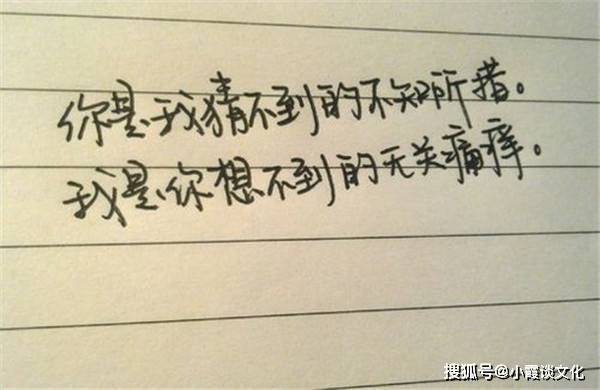 你是我猜不到的不知所措。
我是你想不到的无关痛痒。
搜狐号@小霞谈文化